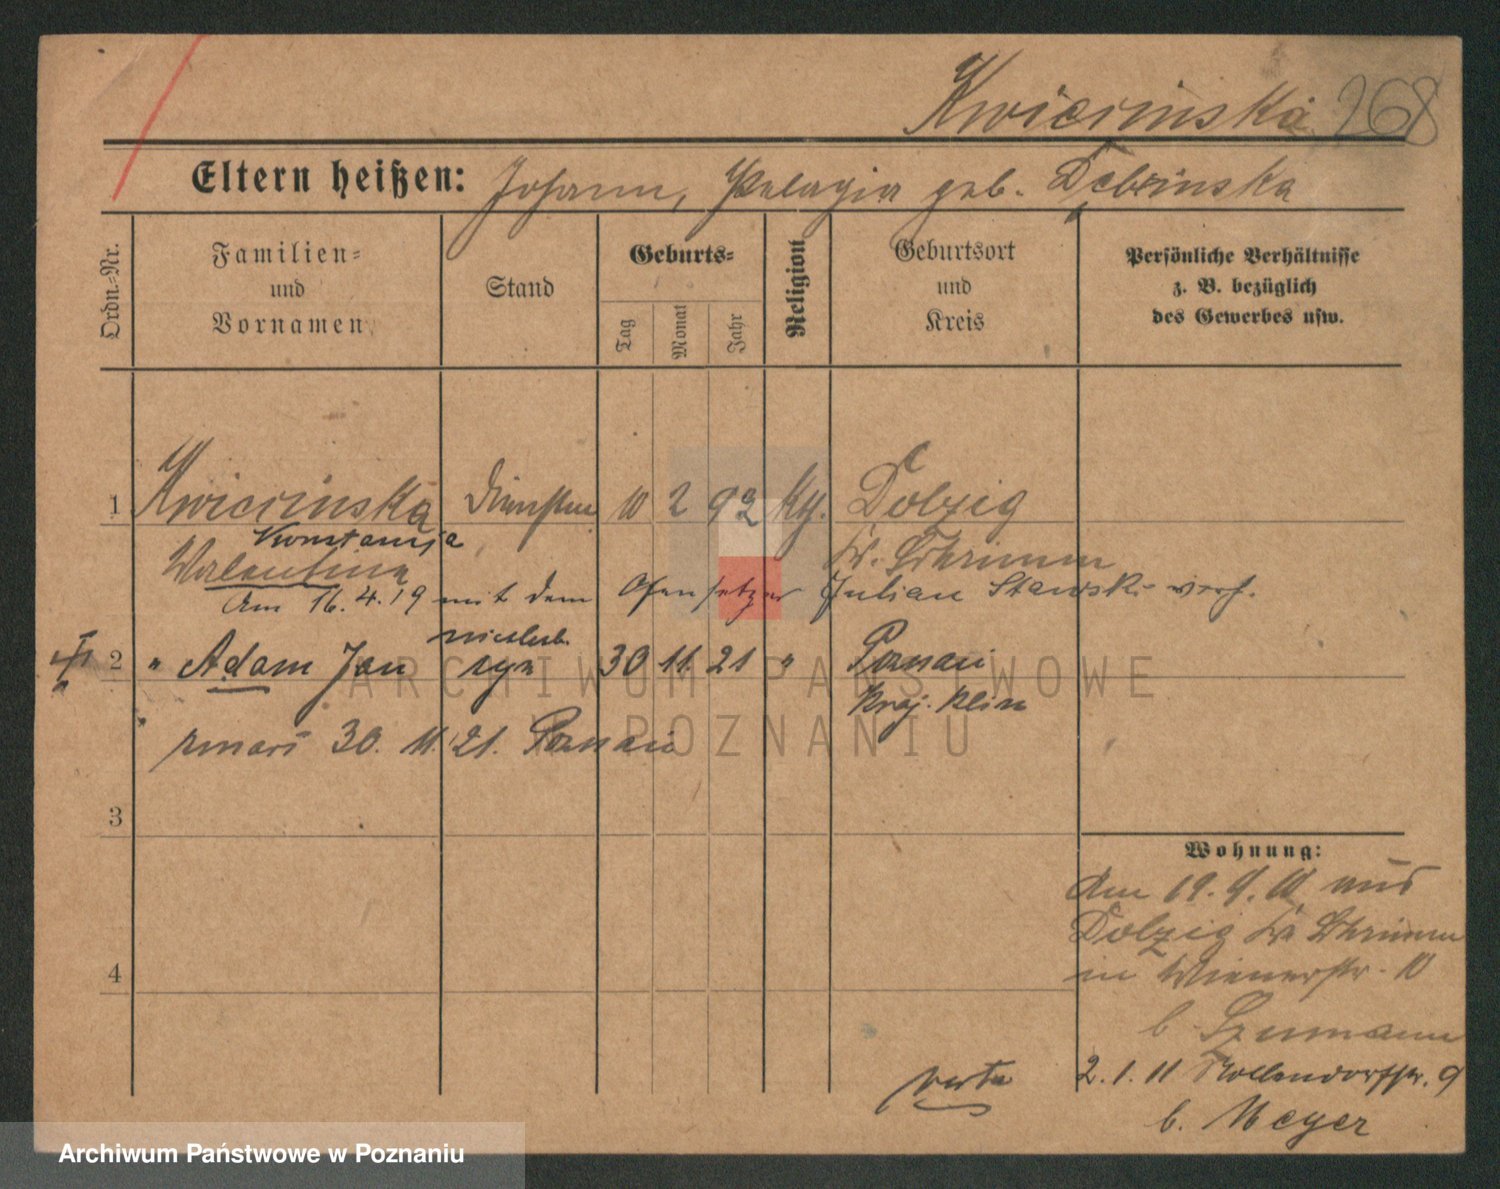 Kwiecińska 268
Eltern heißen: Johann, Pelagia geb. Debinska
Ordn.-Nr.
Familien-
und
Vornamen
Stand
Geburts-
Tag
Monat
Jahr
Religion
Geburtsort
und
Kreis
Persönliche Verhältnisse
z. B. bezüglich
des Gewerbes usw.
1 Kwiecińska 10 2 92 kth. Dolzig
Konstancja
Valentina Kr. Schrimm
Am 16.4.19 mit dem Ofensetzer Julian Stawski verh.
nieślub.
2 " Adam Jan syn 30 11. 21 " Poznań
Kraj. Klin
zmarł 30. 11. 21. Poznań
3
4
Wohnung:
Am 19. 9. 10 aus
Dolzig Kr Schrimm
in Wienerstr. 10
b. Szumann
verte
2. 1. 11 Nollendorfstr. 9
b. Meyer
ARCHIWUM PAŃSTWOWE
W POZNANIU
Archiwum Państwowe w Poznaniu